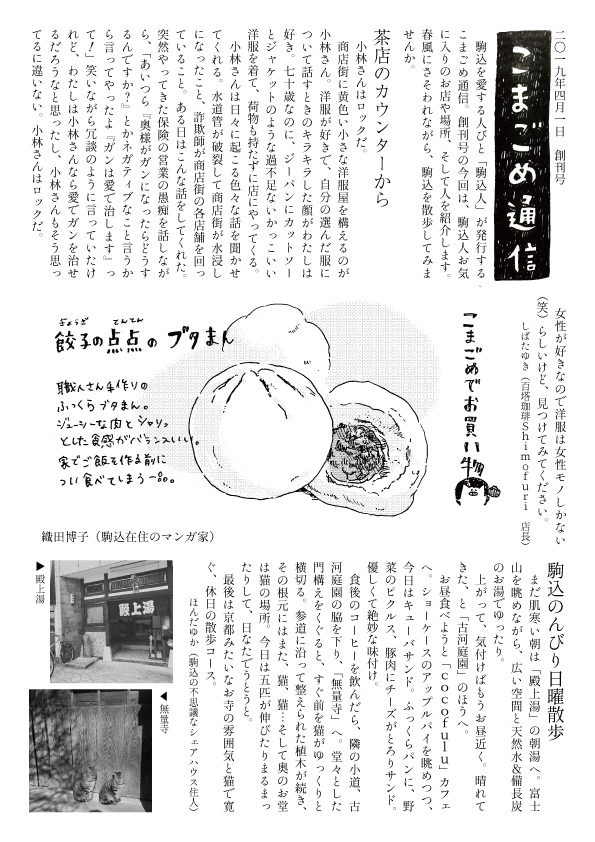 二〇一九年四月一日　創刊号
こまごめ通信
駒込を愛する人びと「駒込人」が発行する、
こまごめ通信。創刊号の今回は、駒込人お気
に入りのお店や場所、そして人を紹介します。
春風にさそわれながら、駒込を散歩してみま
せんか。
茶店のカウンターから
小林さんはロックだ。
商店街に黄色い小さな洋服屋を構えるのが
小林さん。洋服が好きで、自分の選んだ服に
ついて話すときのキラキラした顔がわたしは
好き。七十歳なのに、ジーパンにカットソー
とジャケットのような過不足ないかっこいい
洋服を着て、荷物も持たずに店にやってくる。
小林さんは日々に起こる色々な話を聞かせ
てくれる。水道管が破裂して商店街が水浸し
になったこと、詐欺師が商店街の各店舗を回っ
ていること。ある日はこんな話をしてくれた。
突然やってきた保険の営業の愚痴を話しなが
ら、「あいつら『奥様がガンになったらどうす
るんですか？』とかネガティブなこと言うか
ら言ってやったよ『ガンは愛で治します』っ
て！」笑いながら冗談のように言っていたけ
れど、わたしは小林さんなら愛でガンを治せ
るだろうなと思ったし、小林さんもそう思っ
てるに違いない。小林さんはロックだ。
女性が好きなので洋服は女性モノしかない
（笑）らしいけど、見つけてみてください。
しばたゆき（百塔珈琲Ｓｈｉｍｏｆｕｒｉ　店長）
こまごめでお買い物
ぎょうざ　てんてん
餃子の点点のブタまん
職人さん手作りの
ふっくらブタまん。
ジューシーな肉とシャリっ
とした食感がバランスいい。
家でご飯を作る前に
つい食べてしまう…。
織田博子（駒込在住のマンガ家）
駒込のんびり日曜散歩
まだ肌寒い朝は「殿上湯」の朝湯へ。富士
山を眺めながら、広い空間と天然水＆備長炭
のお湯でゆったり。
上がって、気付けばもうお昼近く。晴れて
きた、と「古河庭園」のほうへ。
お昼食べようと「ｃｏｃｏｆｕｌｕ」カフェ
へ。ショーケースのアップルパイを眺めつつ、
今日はキューバサンド。ふっくらパンに、野
菜のピクルス、豚肉にチーズがとろりサンド。
優しくて絶妙な味付け。
食後のコーヒーを飲んだら、隣の小道、古
河庭園の脇を下り、「無量寺」へ。堂々とした
門構えをくぐると、すぐ前を猫がゆっくりと
横切る。参道に沿って整えられた植木が続き、
その根元にはまた、猫、猫…そして奥のお堂
は猫の場所。今日は五匹が伸びたりまるまっ
たりして、日なたでうとうと。
最後は京都みたいなお寺の雰囲気と猫で寛
ぐ、休日の散歩コース。
ほんだゆか（駒込の不思議なシェアハウス住人）
▼殿上湯
殿上湯
▼無量寺